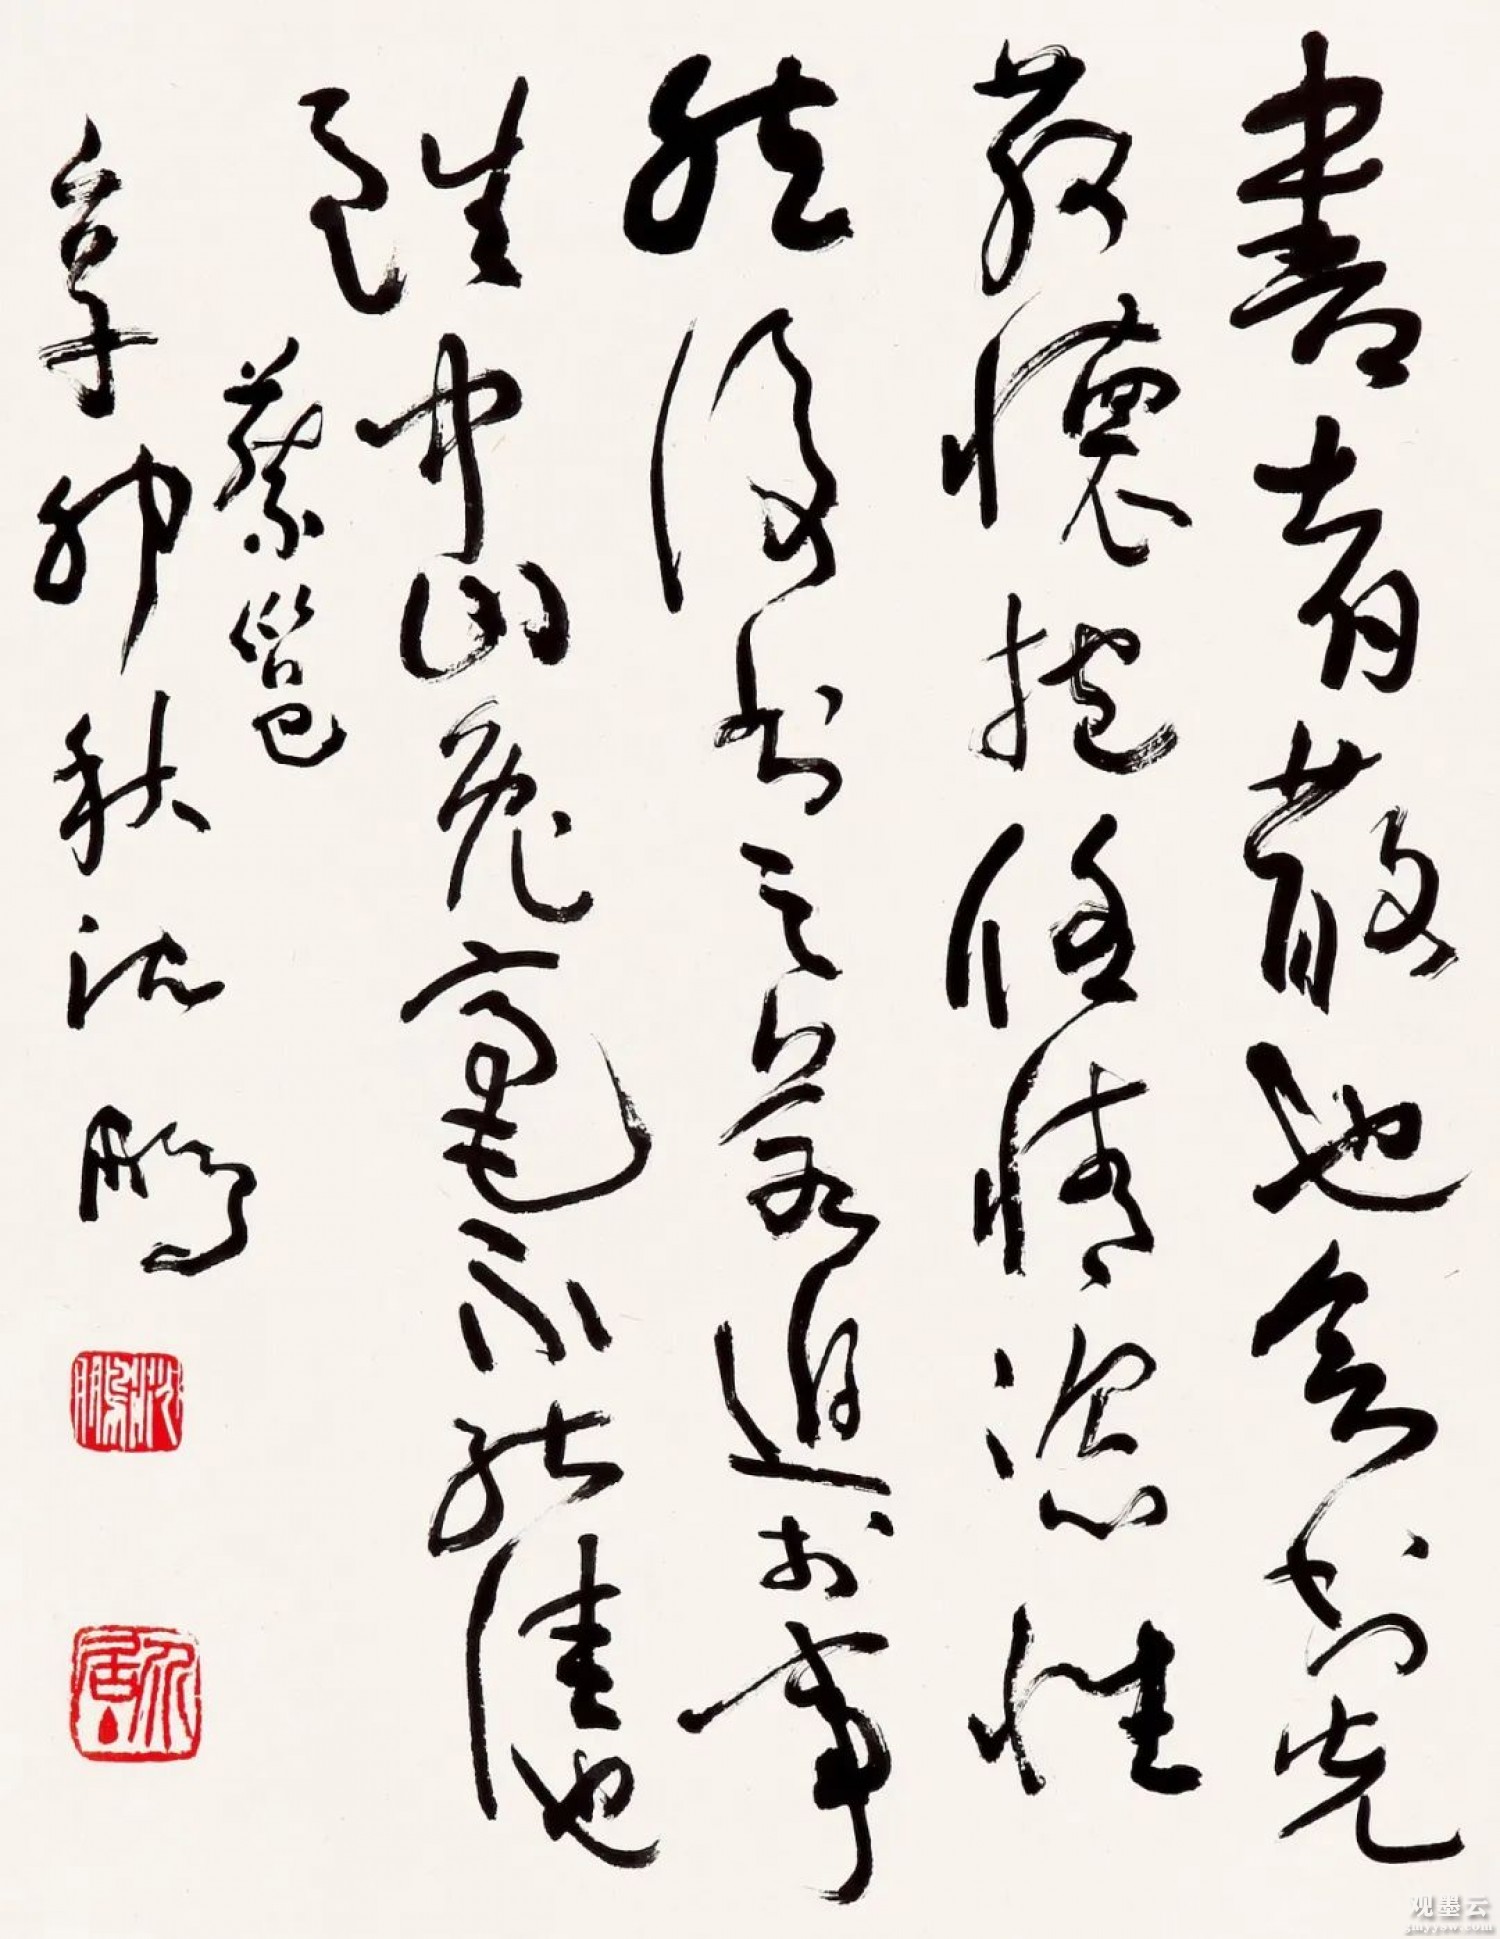 書者散也欲书先
散懷抱任情恣性
然後书之若迫於事
雖中山兔毫不能佳也
蔡邕
辛卯秋沈鹏
沈鵬
介居
观墨云
gmyysw.com